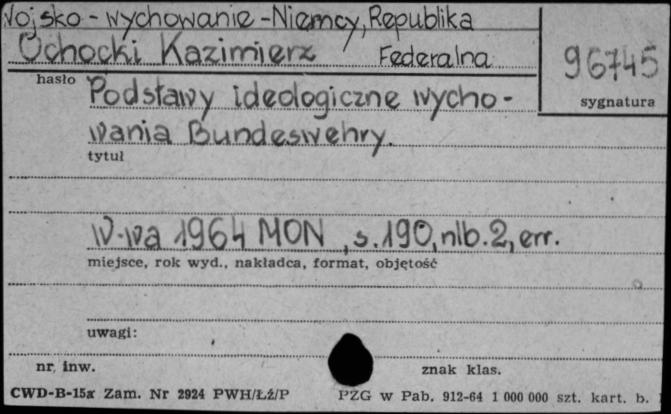 Wojsko - wychowanie - Niemcy, Republika
Ochocki Kazimierz Federalna
96745
hasło
sygnatura
Podstawy ideologiczne wycho-
wania Bundeswehry.
tytuł
W-wa 1964 MON, s. 190, nlb. 2, err.
miejsce, rok wyd., nakładca, format, objętość
uwagi:
nr. inw.
znak klas.
CWD-B-15a Zam. Nr 2924 PWH/Łź/P PZG w Pab. 912-64 1 000 000 szt. kart. b.